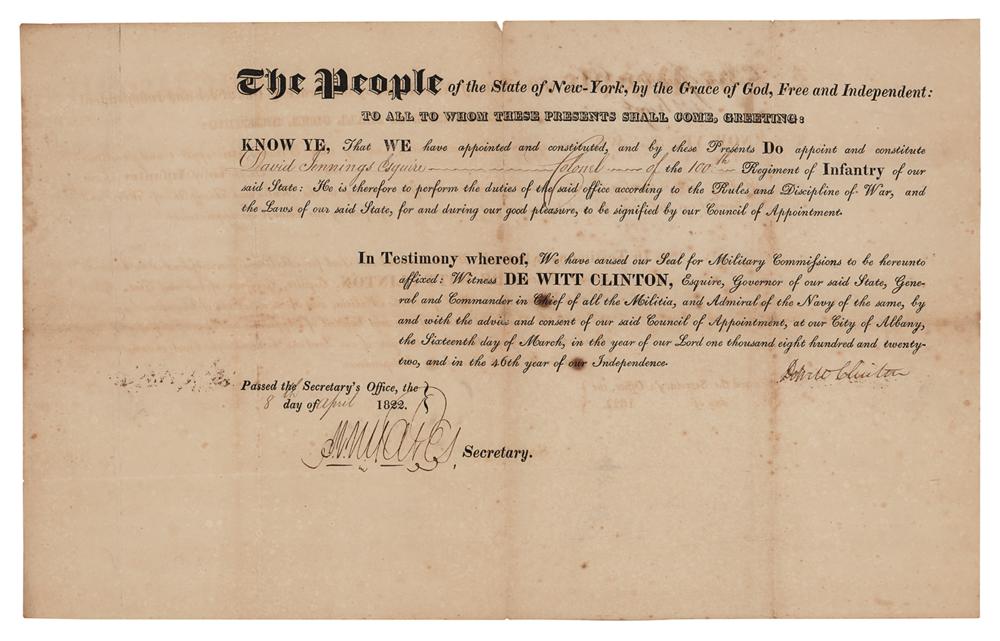 The People of the State of New-York, by the Grace of God, Free and Independent:
TO ALL TO WHOM THESE PRESENTS SHALL COME, GREETING:
KNOW YE, That WE have appointed and constituted, and by these Presents Do appoint and constitute
David Jennings Esquire Colonel of the 100th Regiment of Infantry of our
said State: He is therefore to perform the duties of the said office according to the Rules and Discipline of War, and
the Laws of our said State, for and during our good pleasure, to be signified by our Council of Appointment.
In Testimony whereof, We have caused our Seal for Military Commissions to be hereunto
affixed: Witness DE WITT CLINTON, Esquire, Governor of our said State, Gene-
ral and Commander in Chief of all the Militia, and Admiral of the Navy of the same, by
and with the advice and consent of our said Council of Appointment, at our City of Albany,
the Sixteenth day of March, in the year of our Lord one thousand eight hundred and twenty-
two, and in the 46th year of our Independence.
DeWitt Clinton
Passed the Secretary's Office, the
8th day of April 1822.
Secretary.